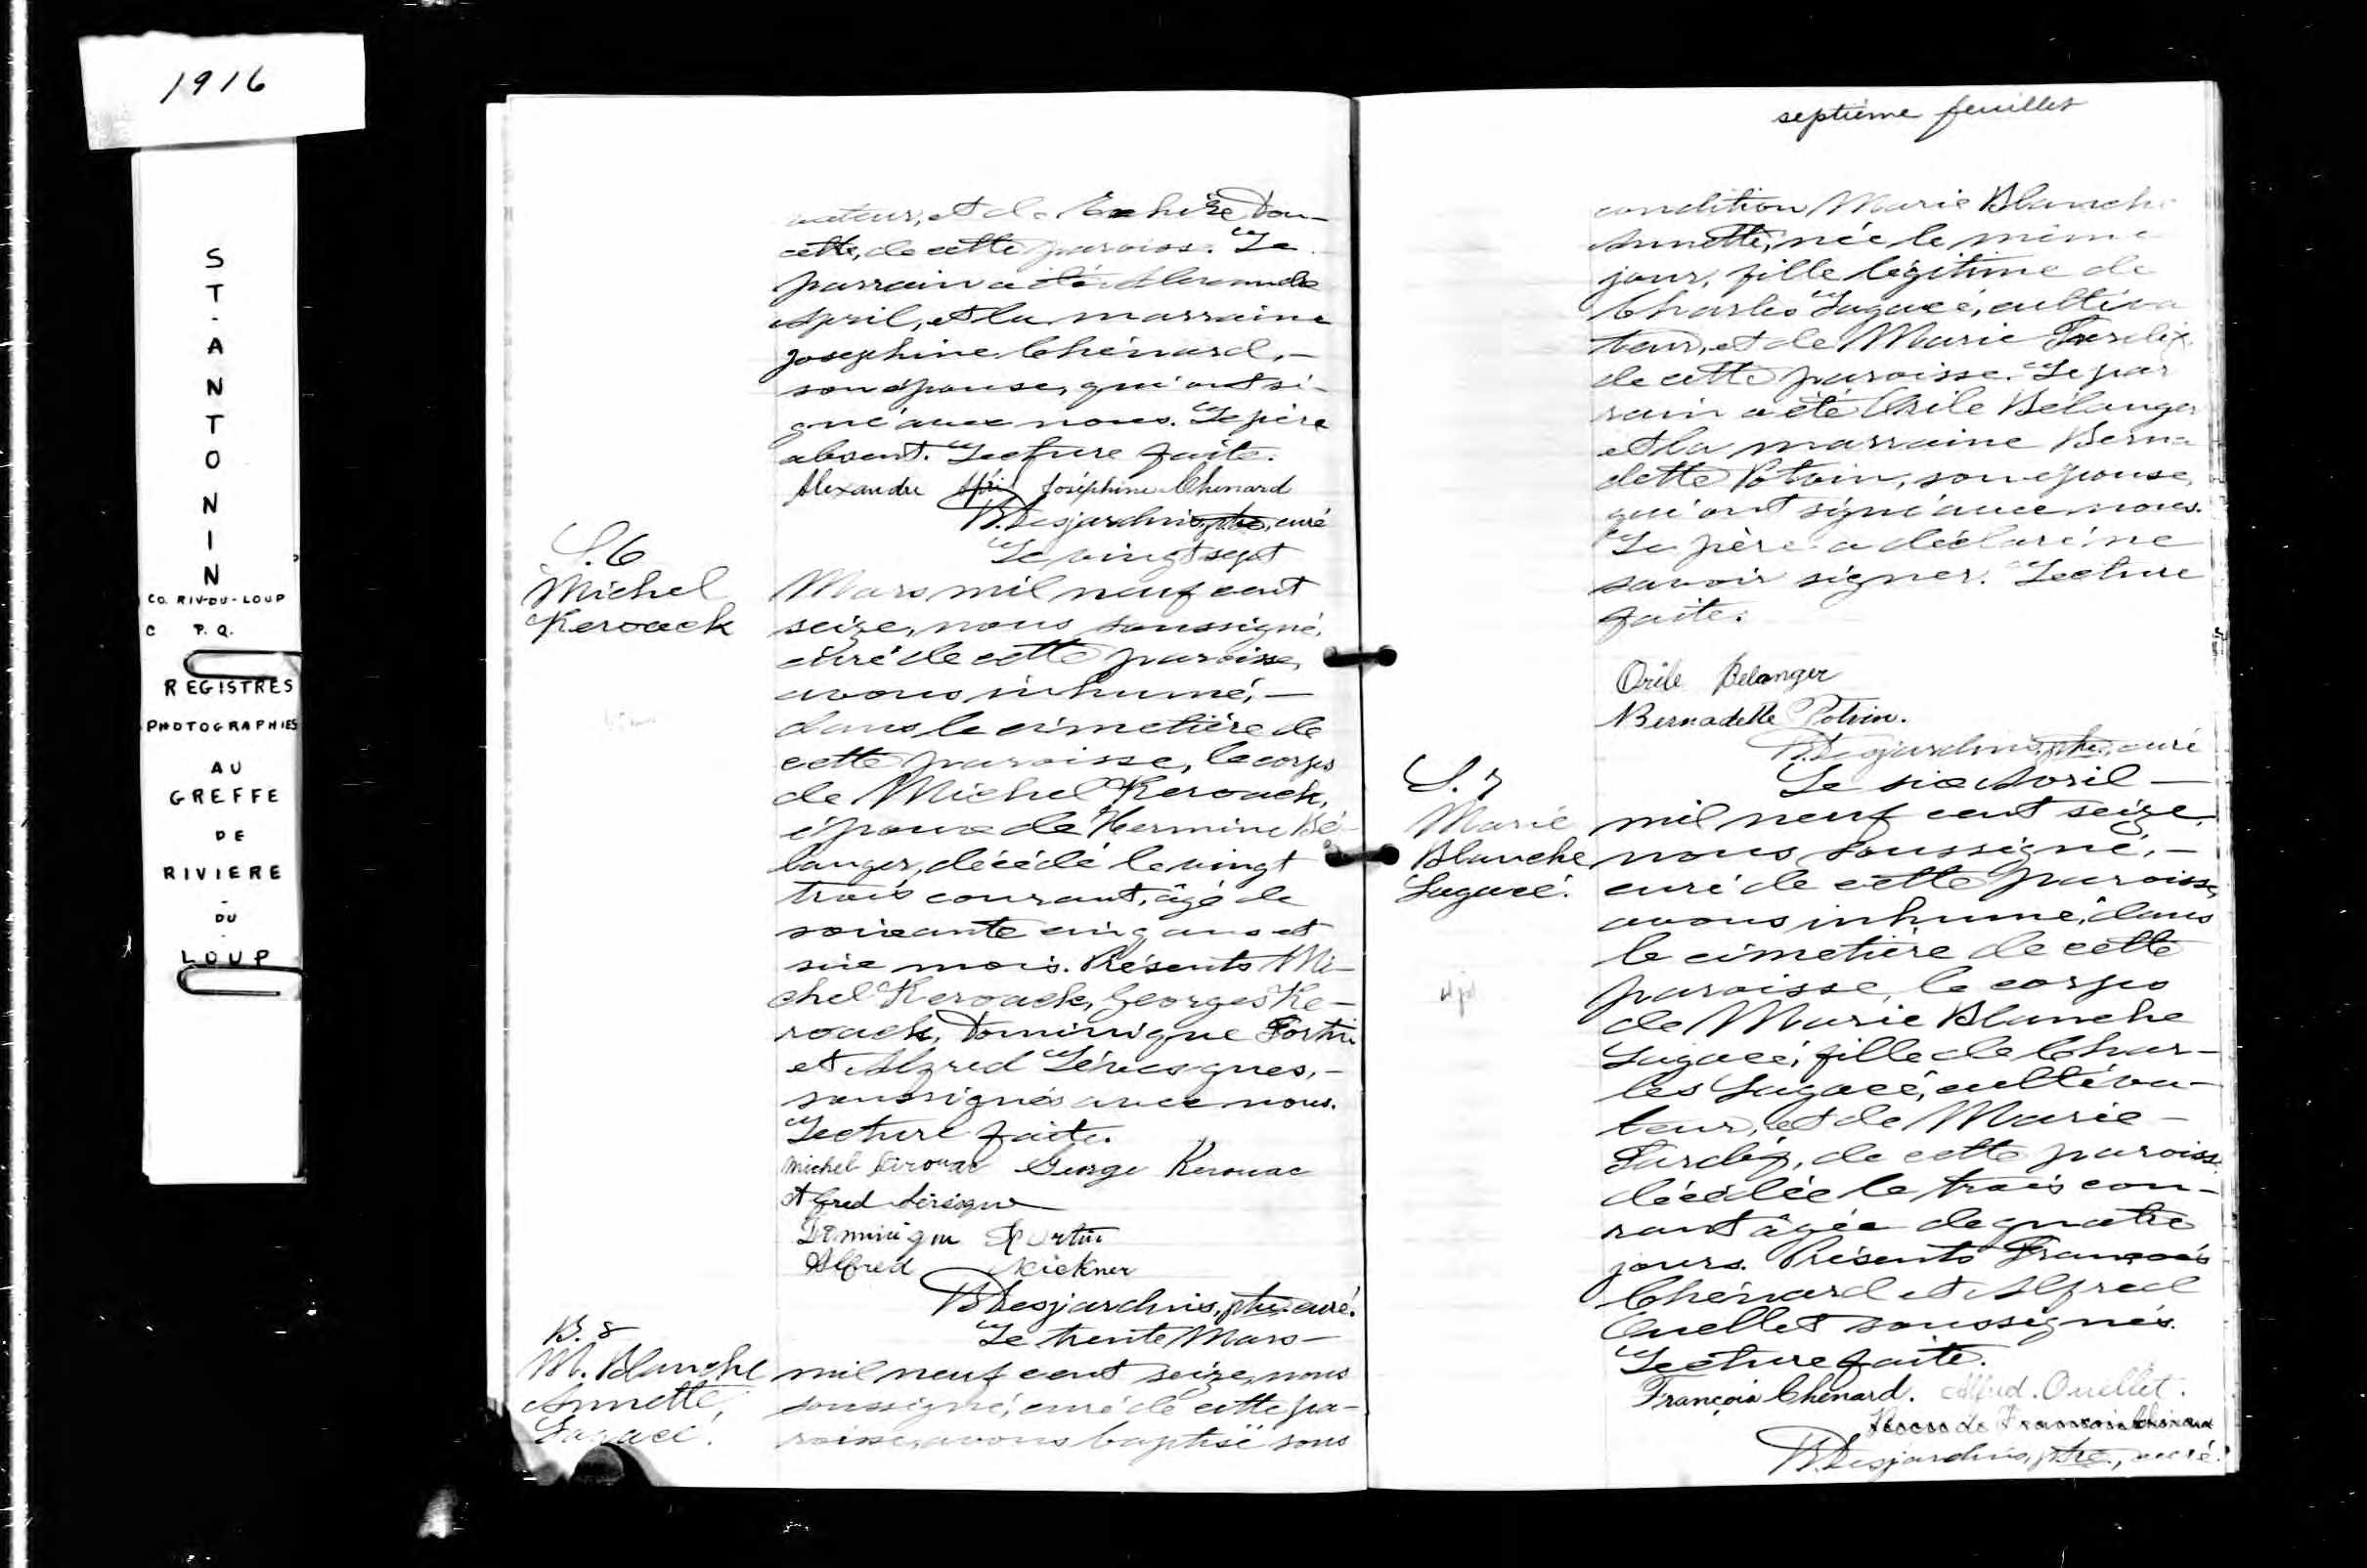 1916
ST-ANTONIN
CO. RIV-DU-LOUP
C P.Q.
REGISTRES
PHOTOGRAPHIES
AU
GREFFE
DE
RIVIERE
-
DU
-
LOUP
vateur, et de Exhire Dou-
cette, de cette paroisse. Le
parrain a été Alexandre
April, et la marraine
Josephine Chénard,-
son épouse, qui ont si-
gné avec nous. Le père
absent. Lecture faite.
Alexandre Josephine Chenard
B. Desjardins, ptre, curé
S. 6
Michel
Kerouack
Le vingt sept
Mars mil neuf cent
seize, nous soussigné,
curé de cette paroisse,
avons inhumé,-
dans le cimetière de
cette paroisse, le corps
de Michel Kerouack,
époux de Hermine Bé-
langer, décédé le vingt
trois courant, âgé de
soixante cinq ans et
six mois. Présents Mi-
chel Kerouack, Georges Ke-
rouack, Dominique Fortin
et Alfred Lévesques,-
soussignés avec nous.
Lecture faite.
Michel Kirouac George Kerouac
Alfred Lévesque
Dominique Fortin
Alfred Nickner
B. Desjardins, ptre. curé.
B. 8
M. Blanche
Annette,
Lagacé.
Le trente Mars-
mil neuf cent seize, nous
soussigné, curé de cette pa-
roisse, avons baptisé sous
septième feuillet
condition Marie Blanche
Annette, née le même
jour, fille légitime de
Charles Lagacé, cultiva
teur, et de Marie Tardif,
de cette paroisse. Le par
rain a été Orile Bélanger
et la marraine Berna
dette Potvin, son épouse,
qui ont signé avec nous.
Le père a déclaré ne
savoir signer. Lecture
faite.
Orile Belanger
Bernadette Potvin.
B. Desjardins, ptre, curé
S. 7
Marie
Blanche
Lagacé.
Le six Avril-
mil neuf cent seize,
nous soussigné,-
curé de cette paroisse,
avons inhumé, dans
le cimetière de cette
paroisse, le corps
de Marie Blanche
Lagacé, fille de Char-
les Lagacé, cultiva-
teur, et de Marie-
Tardif, de cette paroisse.
décédée le trois cou-
rant âgée de quatre
jours. Présents François
Chénard et Alfred
Ouellet soussignés.
Lecture faite.
François Chenard. Alfred. Ouellet.
B. Desjardins, ptre, curé.